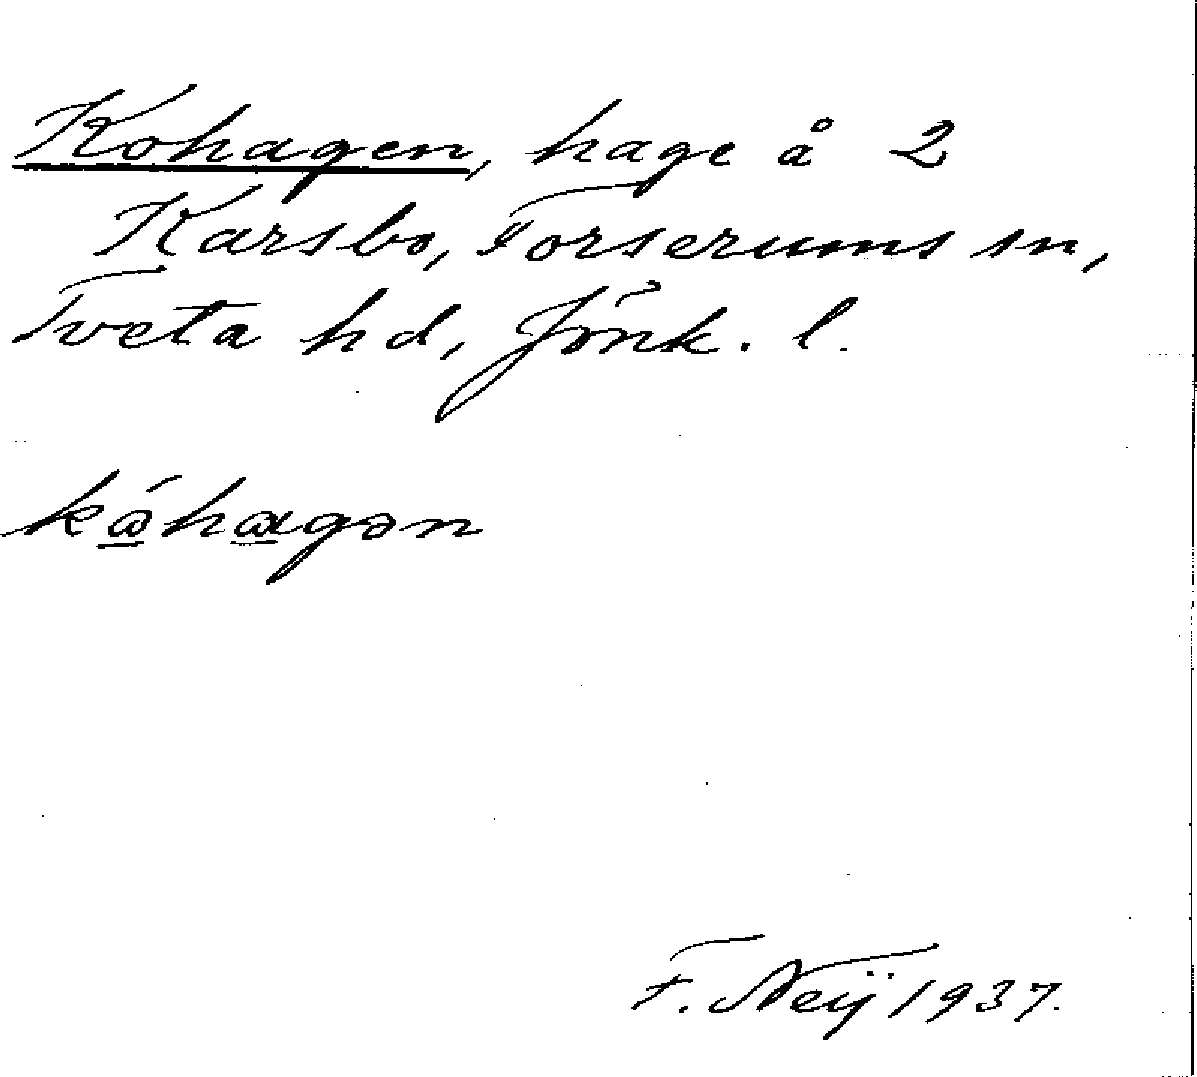 Kohagen, hage å 2
Karsbo, Forserums sn,
Tveta hd, Jönk. l.
kǿhagən
F. Neij 1937.